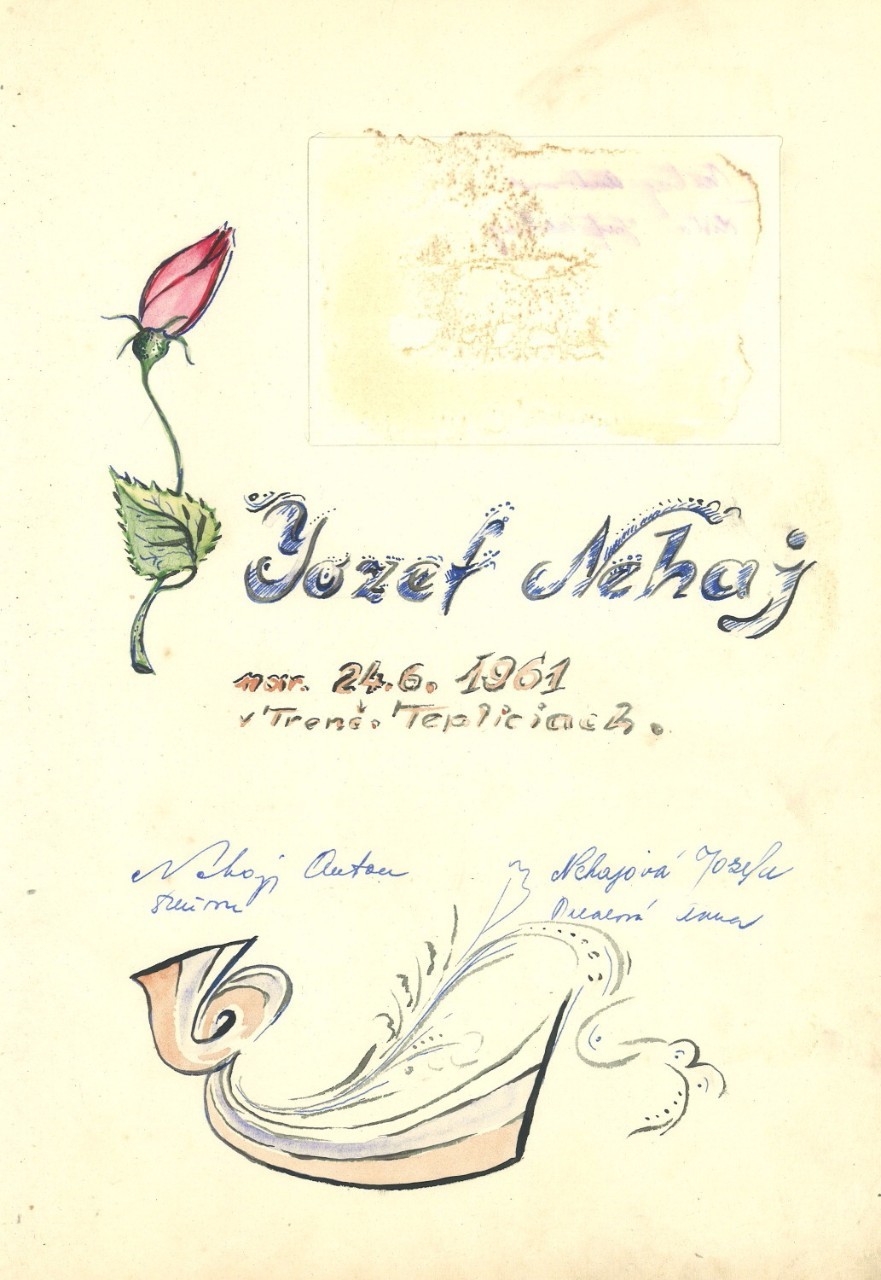 Jozef Nehaj
nar. 24.6. 1961
v Trenč. Tepliciach.
Nehaj Anton
Nehajová Jozefa
Anna